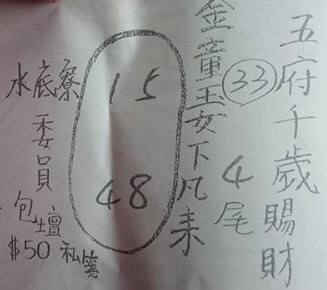 五府千歲賜財
33
4尾
金童玉女下凡來
15
48
水底寮
委員
包壇
$50 私箋